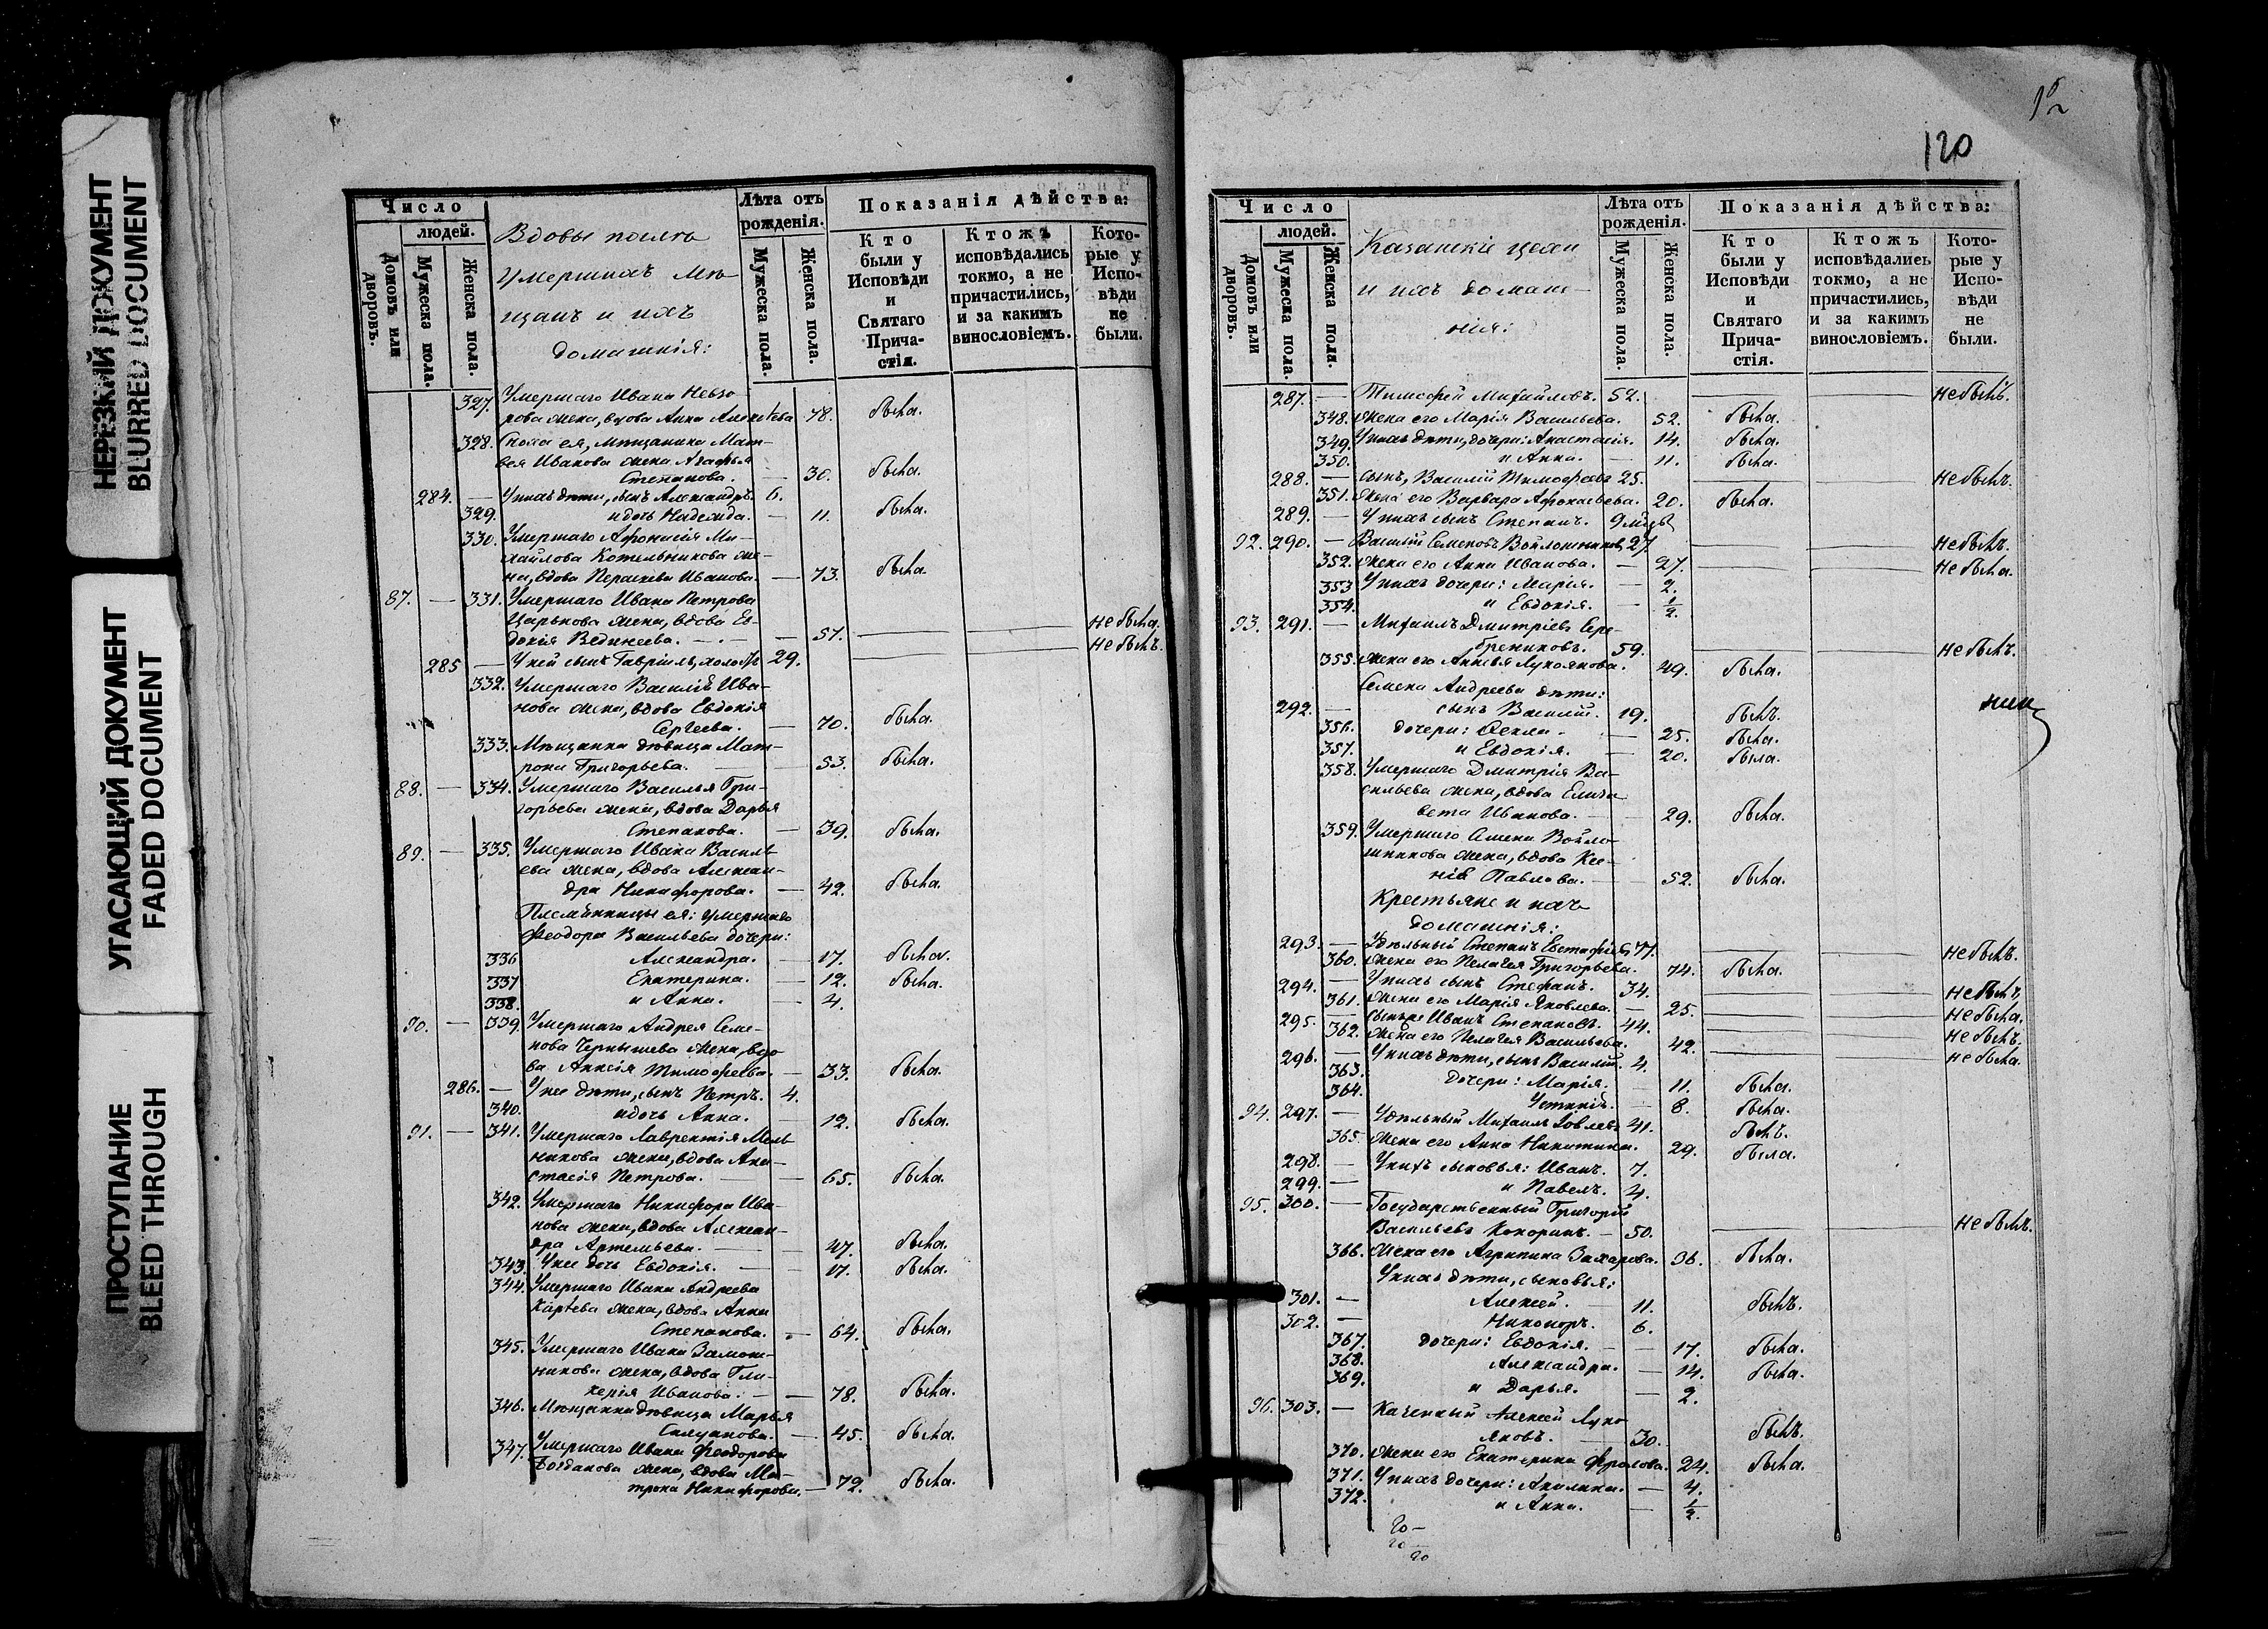 НЕРЕЗКИЙ ДОКУМЕНТ
BLURRED DOCUMENT
УГАСАЮЩИЙ ДОКУМЕНТ
FADED DOCUMENT
ПРОСТУПАНИЕ
BLEED THROUGH
Число
людей.
Домовъ или дворовъ.
Мужеска пола.
Женска пола.
Вдовы послѣ
умершихъ мѣ-
щанъ и ихъ
домашнія:
Лѣта отъ рожденія.
Мужеска пола.
Женска пола.
Показанія дѣйства:
Кто были у Исповѣди и Святаго Прича-стія.
Ктожъ исповѣдались токмо, а не причастились, и за какимъ винословіемъ.
Кото-рые у Испо-вѣди не были.
327. Умершаго Ивана Невзо-
рова жена, вдова Анна Алексѣева 78. была.
328. Сноха ея, мѣщанина Мат-
вея Иванова жена Агафья
Степанова. — 30. была.
284. — У нихъ дѣти, сынъ Александръ. 6.
329. и дочь Надежда. — 11. была.
330. Умершаго Афонасія Ми-
хайлова Котельникова же-
на, вдова Перасковья Иванова. — 73. была.
87. — 331. Умершаго Ивана Петрова
Царькова жена, вдова Ев-
докія Веденеева. — 57. — — не была.
285 — У ней сынъ Гавріилъ, холостъ 29. — — не былъ.
332. Умершаго Василія Ива-
нова жена, вдова Евдокія
Сергеева. — 70. была.
333. Мѣщанка дѣвица Мат-
рона Григорьева. — 53. была.
88. — 334. Умершаго Василья Гри-
горьева жена, вдова Дарья
Степанова. — 39. была.
89. — 335. Умершаго Ивана Василь-
ева жена, вдова Алексан-
дра Никифорова. — 42. была.
Племянницы ея: умершаго
Феодора Васильева дочери:
336 Александра. — 17. была.
337 Екатерина. — 12. была.
338. и Анна. — 4.
90. — 339 Умершаго Андрея Семе-
нова Чернышева жена, вдо-
ва Анисія Тимофеева. — 33. была.
286. — У нее дѣти, сынъ Петръ. 4.
340. и дочь Анна. — 12. была.
91. — 341. Умершаго Лаврентія Мель-
никова жена, вдова Ана-
стасія Петрова. — 65. была.
342. Умершаго Никифора Ива-
нова жена, вдова Алексан-
дра Артемьева. — 47. была.
343. У нее дочь Евдокія. — 17. была.
344. Умершаго Ивана Андреева
Карѣева жена, вдова Анна
Степанова. — 64. была.
345. Умершаго Ивана Замош-
никова жена, вдова Гли-
керія Иванова. — 78. была.
346. Мѣщанка дѣвица Марья
— 45. была.
347. Умершаго Ивана Феодорова
Богданова жена, вдова Ма-
трона Никифорова. — 72. была.
120
Число
людей.
Домовъ или дворовъ.
Мужеска пола.
Женска пола.
Казанскіе цехи
и ихъ домаш-
нія:
Лѣта отъ рожденія.
Мужеска пола.
Женска пола.
Показанія дѣйства:
Кто были у Исповѣди и Святаго Прича-стія.
Ктожъ исповѣдались токмо, а не причастились, и за какимъ винословіемъ.
Кото-рые у Испо-вѣди не были.
287. — Тимофей Михайловъ. 52. — — не былъ.
348. Жена его Марія Васильева. 52. была.
349. У нихъ дѣти, дочери: Анастасія. 14. была.
350. и Анна. — 11. была.
288. — Сынъ, Василій Тимофеевъ 25. — — не былъ.
351. Жена его Варвара Афонасьева. 20. была.
289. — У нихъ сынъ Степанъ. 9 мѣсяц.
92. 290. — Василій Семеновъ Войлошниковъ 27. — — не былъ.
352. Жена его Анна Иванова. — 27. — — не была.
353 У нихъ дочери: Марія. — 2.
354. и Евдокія. — ½.
93. 291. — Михаилъ Дмитріевъ Сере-
брениковъ. 59. — — не былъ.
355. Жена его Лукоянова. 49. была.
Семена Андреева дѣти:
292. — сынъ Василій. 19. былъ.
356. дочери: Фекла. — 25. была.
357. и Евдокія. — 20. была.
358. Умершаго Дмитрія Ва-
сильева жена, вдова Елиза-
вета Иванова. — 29. была.
359. Умершаго Семена Войло-
шникова жена, вдова Ксе-
нія Павлова. — 52. была.
Крестьяне и ихъ
домашнія:
293. — Удѣльный Степанъ Евстафіевъ 77. — — не былъ.
360. Жена его Пелагея Григорьева. 74. была.
294. — У нихъ сынъ Стефанъ. 34. — — не былъ.
361. Жена его Марія Яковлева. — 25. — — не была.
295. — Сынъ же Иванъ Степановъ. 44. — — не былъ.
362. Жена его Пелагея Васильева. 42. — — не была.
296. — У нихъ дѣти, сынъ Василій. 4.
363. дочери: Марія. — 11. была.
364. Устинія. — 8. была.
94. 297. — Удѣльный Михаилъ Іовлевъ 41. былъ.
365. Жена его Анна Никитина. 29. была.
298. — У нихъ сыновья: Иванъ. 7.
299. — и Павелъ. 4.
95. 300. — Государственный Григорій
Васильевъ Кокоринъ. — 50. — — не былъ.
366. Жена его Агрипина Захарова. 36. была.
У нихъ дѣти, сыновья:
301. — Алексей. 11. былъ.
302. — Никоноръ. 6.
367. дочери: Евдокія. — 17. была.
368. Александра. — 14. была.
369. и Дарья. — 2.
96. 303. — Казенный Алексей Луко-
яновъ. 30. былъ.
370. Жена его Екатерина Фролова. 24. была.
371. У нихъ дочери: Акилина. — 4.
372. и Анна. — ½.
20 —
20 —
20